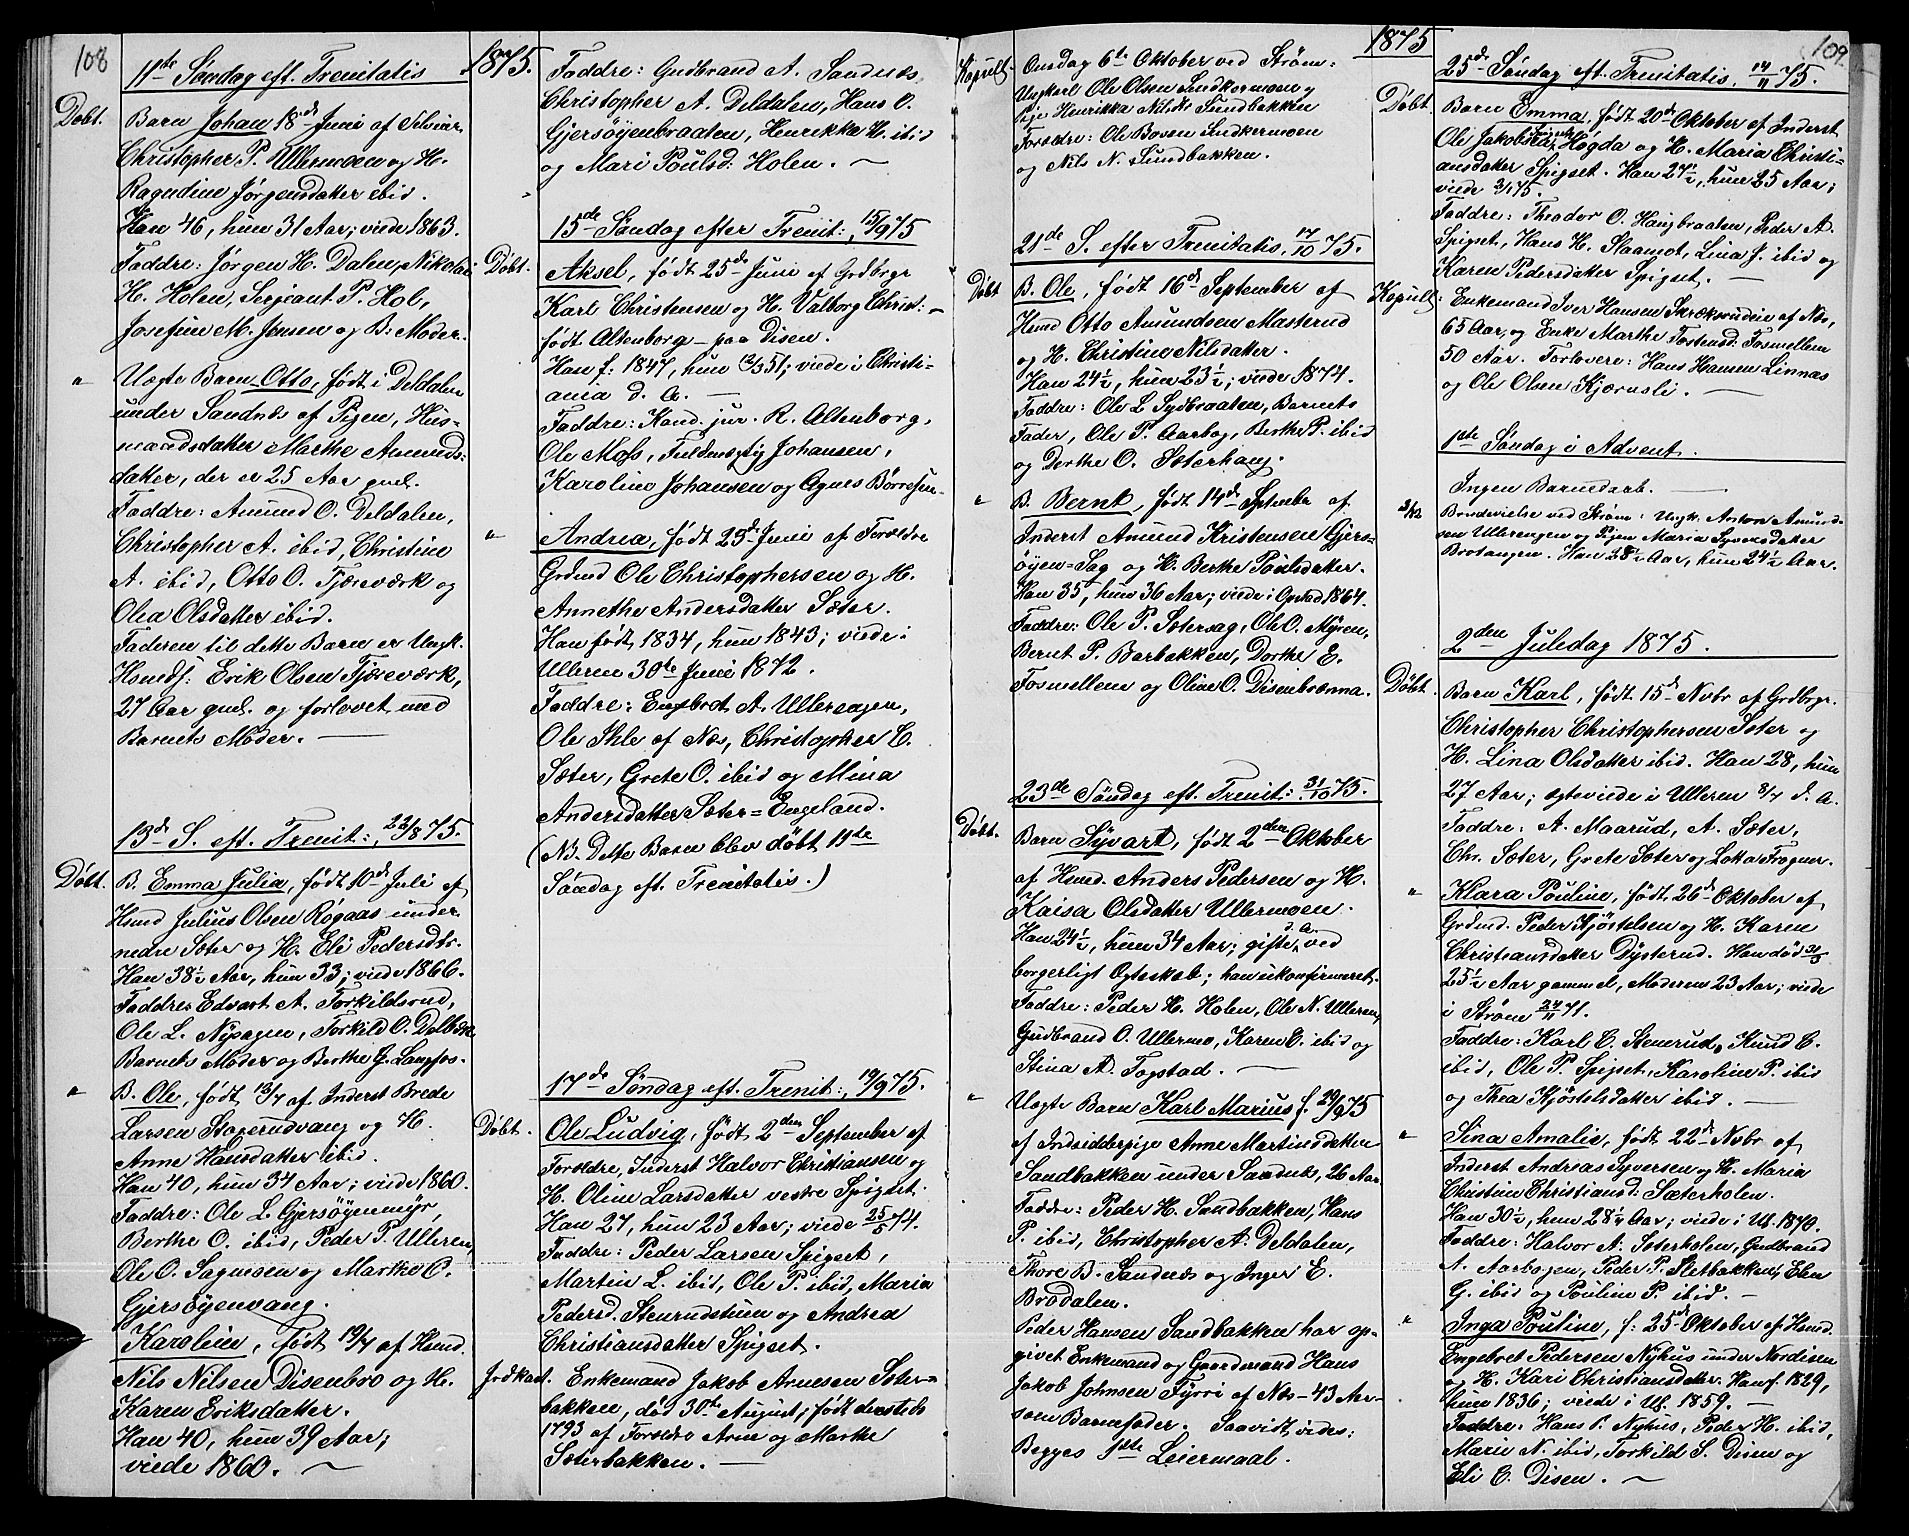 108
1875.
11te Søndag eft. Trenitatis
Døbt.
Barn Johan 18de Juni af Selveier
Christopher P. Ullermoen og H.
Ragndine Jørgensdatter ibid.
Han 46, hun 31 Aar; viede 1863.
Faddre: Jørgen H. Dalen, Nikolai
H. Holen, Serjeant P. Hol,
Josefine M. Jensen og B. Moder.
" Uægte Barn Otto, født i Deldalen
under Sandnæs af Pigen, Hus-
mandsdatter Marthe Amunds-
datter, der er 25 Aar gml.
Faddre: Amund O. Deldalen,
Christopher A. ibid, Christine
A. ibid, Otto O. Tjæreværk og
Olea Olsdatter ibid.
Faderen til dette Barn er Ungk.
Hsmds. Erik Olsen Tjæreværk,
27 Aar gml. og forlovet med
Barnets Moder. —
13de S. eft. Trenit:, 22/8 75.
Døbt.
B. Emma Julia, født 10de Juli af
Hsmd Julius Olsen Rögaas under
nedre Sæter og H. Eli Pedersdtr.
Han 38½ Aar, hun 33; viede 1866.
Faddre: Edvart A. Torkildsrud,
Ole L. Nysagen, Torkild O. Dolbæk
Barnets Moder og Berthe G. Langfos.
" B. Ole, født 13/7 af Inderst Brede
Larsen Stagerudvang og H.
Anne Hansdatter ibid.
Han 40, hun 34 Aar; viede 1860.
Faddre: Ole L. Gjersøyenmyr,
Berthe O. ibid, Peder P. Ulleren,
Ole O. Sagmoen og Marthe O.
Gjersøyenvang.
Karoline, født 19/7 af Hsmd.
Nils Nilsen Disenbro og H.
Karen Eriksdatter.
Han 40, hun 39 Aar;
viede 1860. —
Faddre: Gudbrand A. Sandnæs,
Christopher A. Deldalen, Hans O.
Gjersøyenbraaten, Henrikke H. ibid
og Mari Poulsd. Holen. —
15de Søndag efter Trenit:, 15/9 75
Døbt.
Aksel, født 25de Juni af Grdbrgr
Karl Christensen og H. Valborg Christ: —
født Altenborg — paa Disen.
Han f: 1847, hun 12/3 51; viede i Christi-
ania d. A. —
Faddre: Kand. jur. R. Altenborg,
Ole Moss, Fuldmægtig Johansen,
Karoline Johansen og Agnes Børresen.
" Andrea, født 25de Juni af Forældre
Grdmd Ole Christophersen og H.
Annethe Andersdatter Sæter.
Han født 1834, hun 1843; viede i
Ulleren 30te Juni 1872.
Faddre: Engebret A. Ullerengen,
Ole Ihle af Næs, Christopher C.
Sæter, Grete O. ibid og Mina
Andersdatter Sæter=Engeland.
(NB. Dette Barn blev døbt 11te
Søndag eft. Trenitatis.)
17de Søndag eft. Trenit:, 19/9 75.
Døbt.
Ole Ludvig, født 2den September af
Forældre, Inderst Halvor Christiansen og
H. Oline Larsdatter vestre Spigset.
Han 27, hun 23 Aar; viede 25/5 74.
Faddre: Peder Larsen Spigset,
Martin L. ibid, Ole P. ibid, Maria
Pedersd. Stenrudstuen og Andrea
Christiansdatter Spigset.
Jrdkast.
Enkemand Jakob Arnesen Sæter-
bakken, død 30te August; født dersteds
1793 af Forældre Arne og Marthe
Sæterbakken. —
1875
109.
Kopull.
Onsdag 6te Oktober ved Strøm:
Ungkarl Ole Olsen Sudkermoen og
Pige Henrikka Nilsdt Sundbakken
Forældre: Ole Bosen Sudkermoen
og Nils N. Sundbakken.
21de S. efter Trenitatis, 17/10 75.
Døbt
B. Ole, født 16de September af
Hsmd Otto Amundsen Masterud
og H. Christine Nilsdatter.
Han 24½, hun 23½; viede 1874.
Faddre: Ole L. Sydbraaten, Barnets
Fader, Ole P. Aarbog, Berthe P. ibid
og Dorthe O. Sæterhaug.
" B. Bernt, født 14de Septembr af
Inderst Amund Kristensen Gjers-
øyen=Sag og H. Berthe Poulsdatter.
Han 35, hun 36 Aar; viede i Grstad 1864.
Faddre: Ole P. Sætersag, Ole O. Myren,
Bernt P. Barbakken, Dorthe E.
Tosmellem og Oline O. Disenbrænna.
23de Søndag eft. Trenit: 31/10 75.
Døbt.
Barn Syvart, født 2den Oktober
af Hsmd. Anders Pedersen og H.
Kaisa Olsdatter Ullermoen.
Han 24½, hun 34 Aar; gifte d. A. ved
borgerligt Ægteskab; han ukonfirmeret.
Faddre: Peder H. Holen, Ole N. Ulleren,
Gudbrand O. Ullermo, Karen E. ibid og
Stina A. Fogstad. —
" Uægte Barn Karl Marius f. 29/9 75
af Indsidderpige Anne Martinsdatter
Sandbakken under Sandnæs, 26 Aar.
Faddre: Peder H. Sandbakken, Hans
P. ibid, Christopher A. Deldalen,
Thore B. Sandnæs og Inger E.
Brodalen.
Peder Hansen Sandbakken har op-
givet Enkemand og Gaardmand Hans
Jakob Johnsen Fyrri af Næs — 43 Aar —
som Barnefader. Saavidt vides:
Begges 1ste Leiermaal.
25de Søndag eft. Trenitatis, 14/11 75.
Døbt.
Barn Emma, født 20de Oktober af Inderst
Ole Jakobsen, Spigset Høgda og H. Maria Christi-
ansdatter Spigset. Han 27½, hun 25 Aar;
viede 3/1 75
Faddre: Theodor O. Haugbraaten, Peder A.
Spigset, Hans H. Slaamot, Lina J. ibid og
Karen Pedersdatter Spigset. —
Kopull:
Enkemand Iver Hansen Skrækkerudeie af Næs,
65 Aar, og Enke Marthe Tostensd: Tosmellem
50 Aar. Forlovere: Hans Hansen Linnæs
og Ole Olsen Kjærnsli. —
1ste Søndag i Advent.
Ingen Barnedaab. —
3/12 Brudevielse ved Strøm: Ungk. Anton Amund-
sen Ullerengen og Pigen Maria Syversdatter
Brotangen. Han 28½ Aar, hun 24½ Aar.
2den Juledag 1875.
Døbt.
Barn Karl, født 15de Novbr af Grdbrgr.
Christopher Christophersen Sæter og
H. Lina Olsdatter ibid. Han 28, hun
27 Aar; ægteviede i Ulleren 8/7 d. A.
Faddre: A. Maarud, A. Sæter,
Chr. Sæter, Grete Sæter og Loka Frogner.
" Klara Pouline, født 26de Oktober af
Grdmd. Peder Kjøstelsen og H. Karen
Christiansdatter Dysterud. Han død
25½ Aar gammel, Moderen 23 Aar; viede
i Strøm 24/11 71.
Faddre: Karl C. Stenerud, Knud C.
ibid, Ole P. Spigset, Karoline P. ibid
og Thea Kjøstelsdatter ibid. —
" Sina Amalie, født 22de Novbr af
Inderst Andreas Syversen og H. Maria
Christine Christiansd: Sæterholen.
Han 30½, hun 28¼ Aar; viede i Ull. 1870.
Faddre: Halvor A. Sæterholen, Gudbrand
A. Aarbogen, Peder P. Sletbakken, Elen
G. ibid og Pouline P. ibid. —
" Inga Pouline, f: 25de Oktober af Hsmd.
Engebret Pedersen Nyhus under Nordisen
og H. Kari Christiansdatter. Han f. 1829,
hun 1836; viede i Ull. 1859. —
Faddre: Hans P. Nyhus, Peder H. ibid,
Marie N. ibid, Torkild S. Disen og
Eli C. Disen. —